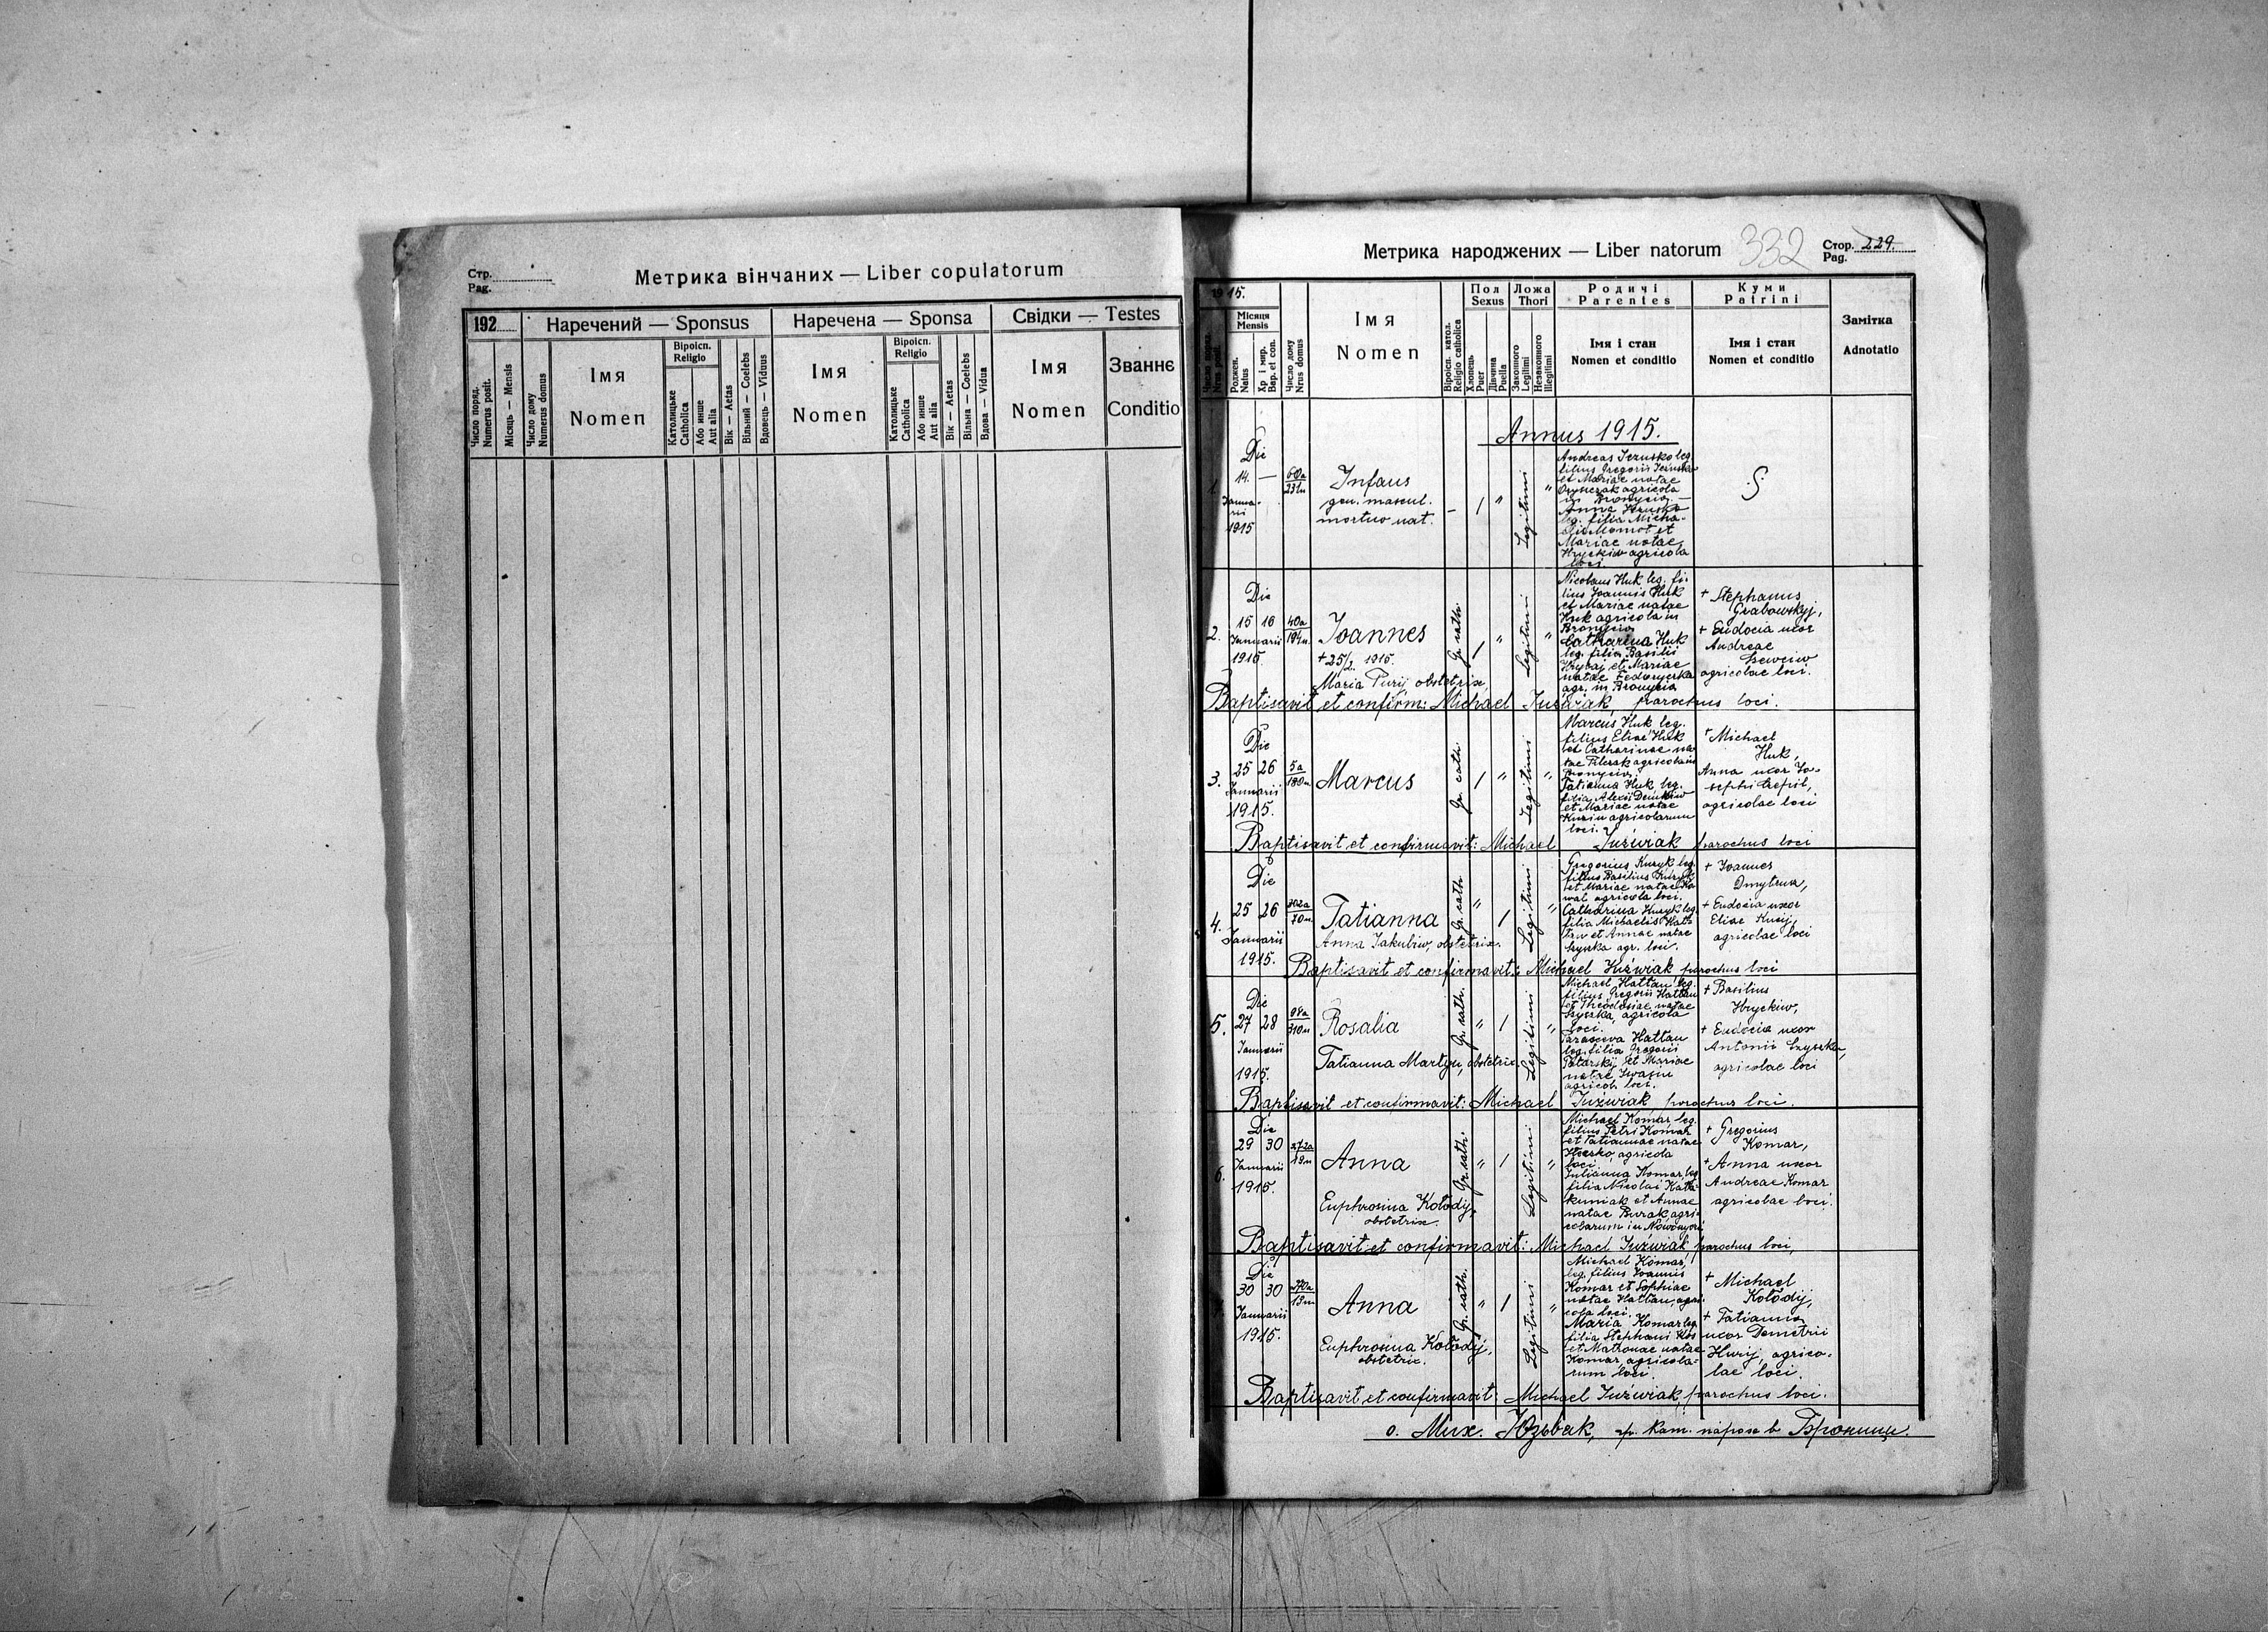 Стр.
Pag.
Метрика вінчаних — Liber copulatorum
192
Наречений — Sponsus
Наречена — Sponsa
Свідки — Testes
Число поряд.
Numerus posit.
Місяць — Mensis
Число дому
Numerus domus
Імя
Nomen
Віроісп.
Religio
Католицьке
Catholica
Або инше
Aut alia
Вік — Aetas
Вільний — Coelebs
Вдовець — Viduus
Імя
Nomen
Віроісп.
Religio
Католицьке
Catholica
Або инше
Aut alia
Вік — Aetas
Вільна — Coelebs
Вдова — Vidua
Імя
Nomen
Званнє
Conditio
Метрика народжених — Liber natorum
332
Стор. 229.
Pag.
1915.
Місяця
Mensis
Рожден.
Natus
Хр. і мир.
Bap. et con.
Число дому
Nrus domus
Імя
Nomen
Віроісп. катол.
Religio catholica
Пол
Sexus
Хлопець
Puer
Дівчина
Puella
Ложа
Thori
Законного
Legitimi
Незаконного
Illegitimi
Родичі
Parentes
Імя і стан
Nomen et conditio
Куми
Patrini
Імя і стан
Nomen et conditio
Замітка
Adnotatio
Annus 1915.
1.
Die
14. —
Januarii
1915
Infans
gen. mascul.
mortuo nat.
— 1 "
Legitimi "
et Mariae natae
agricola
leg. filia Micha-
Mariae natae
agricola
loci.
2.
Die
15 16
Januarii
1915.
40a
194n.
Joannes
+ 25/2. 1915.
Maria Puryj, obstetrix,
Gr. cath.
1 "
Legitimi "
Nicolaus Huk leg. fi-
lius Joannis Huk
et Mariae natae
Huk agricola in
Bronycia
Catharina Huk
leg. filia Basilii
Hrybaj et Mariae
natae
agr. in Bronycia
+ Stephanus
Grabowskyj,
+ Eudocia uxor
Andreae
agricolae loci.
Baptisavit et confirm: Michael Juźwiak, parochus loci.
3.
Die
25 26
Januarii
1915.
5a
180n
Marcus
Gr. cath.
1 "
Legitimi "
Marcus Huk leg.
filius Eliae Huk
et Catharinae na-
tae agricola in
Bronycia.
Tatianna Huk leg.
filia Alexii
et Mariae natae
agricolarum
loci.
+ Michael
Huk,
Anna uxor Jo-
sephi
agricolae loci
Baptisavit et confirmavit: Michael Juźwiak parochus loci
4.
Die
25 26
Januarii
1915.
70n.
Tatianna
Anna Jakubiw, obstetrix.
Gr. cath
" 1
Legitimi "
Gregorius Kuryk leg.
filius Basilius Kuryk
et Mariae natae Ko-
wal agricola loci.
Catharina Kuryk leg.
filia Michaelis
et Annae natae
agr. loci.
+ Joannes
+ Eudocia uxor
Eliae
agricolae loci
Baptisavit et confirmavit: Michael Juźwiak parochus loci
5.
Die
27 28
Januarii
1915.
310n
Rosalia
Tatianna Martyn, obstetrix.
Gr. cath.
" 1
Legitimi "
Michael Hattan leg.
filius Gregorii Hattan
et Theodosiae natae
Szyszka, agricola
loci.
Parasceva Hattan
leg. filia Gregorii
et Mariae
natae
agricol. loci.
+ Basilius
Hryckiw,
+ Eudocia uxor
Antonii Szyszka,
agricolae loci
Baptisavit et confirmavit: Michael Juźwiak parochus loci.
6.
Die
29 30
Januarii
1915.
272a
19n
Anna
Euphrosina Kołodij,
obstetrix.
Gr. cath.
" 1
Legitimi "
Michael Komar, leg.
filius Petri Komar
et Tatiannae natae
agricola
loci
Julianna Komar, leg.
filia Nicolai
et Annae
natae Burak, agri-
colarum in
+ Gregorius
Komar,
+ Anna uxor
Andreae Komar
agricolae loci.
Baptisavit et confirmavit: Michael Juźwiak, parochus loci,
Die
30 30
Januarii
1915.
270a
13n
Anna
Euphrosina Kołodij,
obstetrix.
Gr. cath.
" 1
Legitimi "
Michael Komar,
leg. filius Joannis
Komar et Sophiae
natae Hattan, agri-
cola loci.
Maria Komar leg.
filia Stephani Kos
et Matronae natae
Komar, agricola-
rum loci.
+ Michael
Kołodij,
+ Tatianna
uxor Demetrii
Hurij, agrico-
lae loci.
Baptisavit et confirmavit: Michael Juźwiak, parochus loci.
о. Мих. Юзьвак, гр. кат. парох в Брониці.